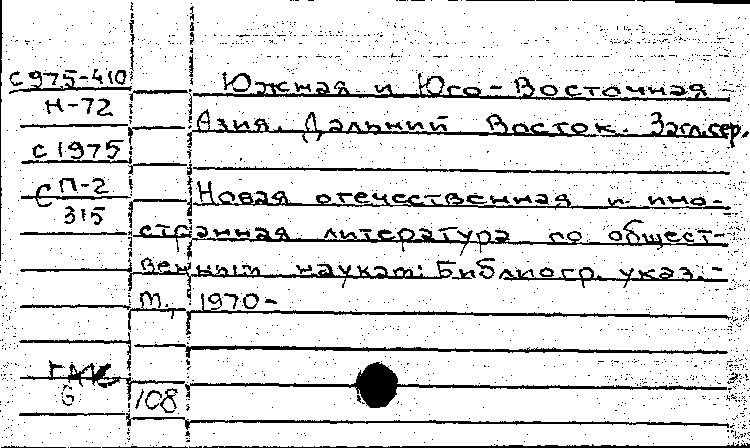 С975-410
Н-72
С1975
С П-2
315
Южная и Юго-Восточная
Азия. Дальний Восток. Загл.сер.
Новая отечественная и ино-
странная литература по общест-
венным наукам: Библиогр. указ.-
М., 1970-
6
108